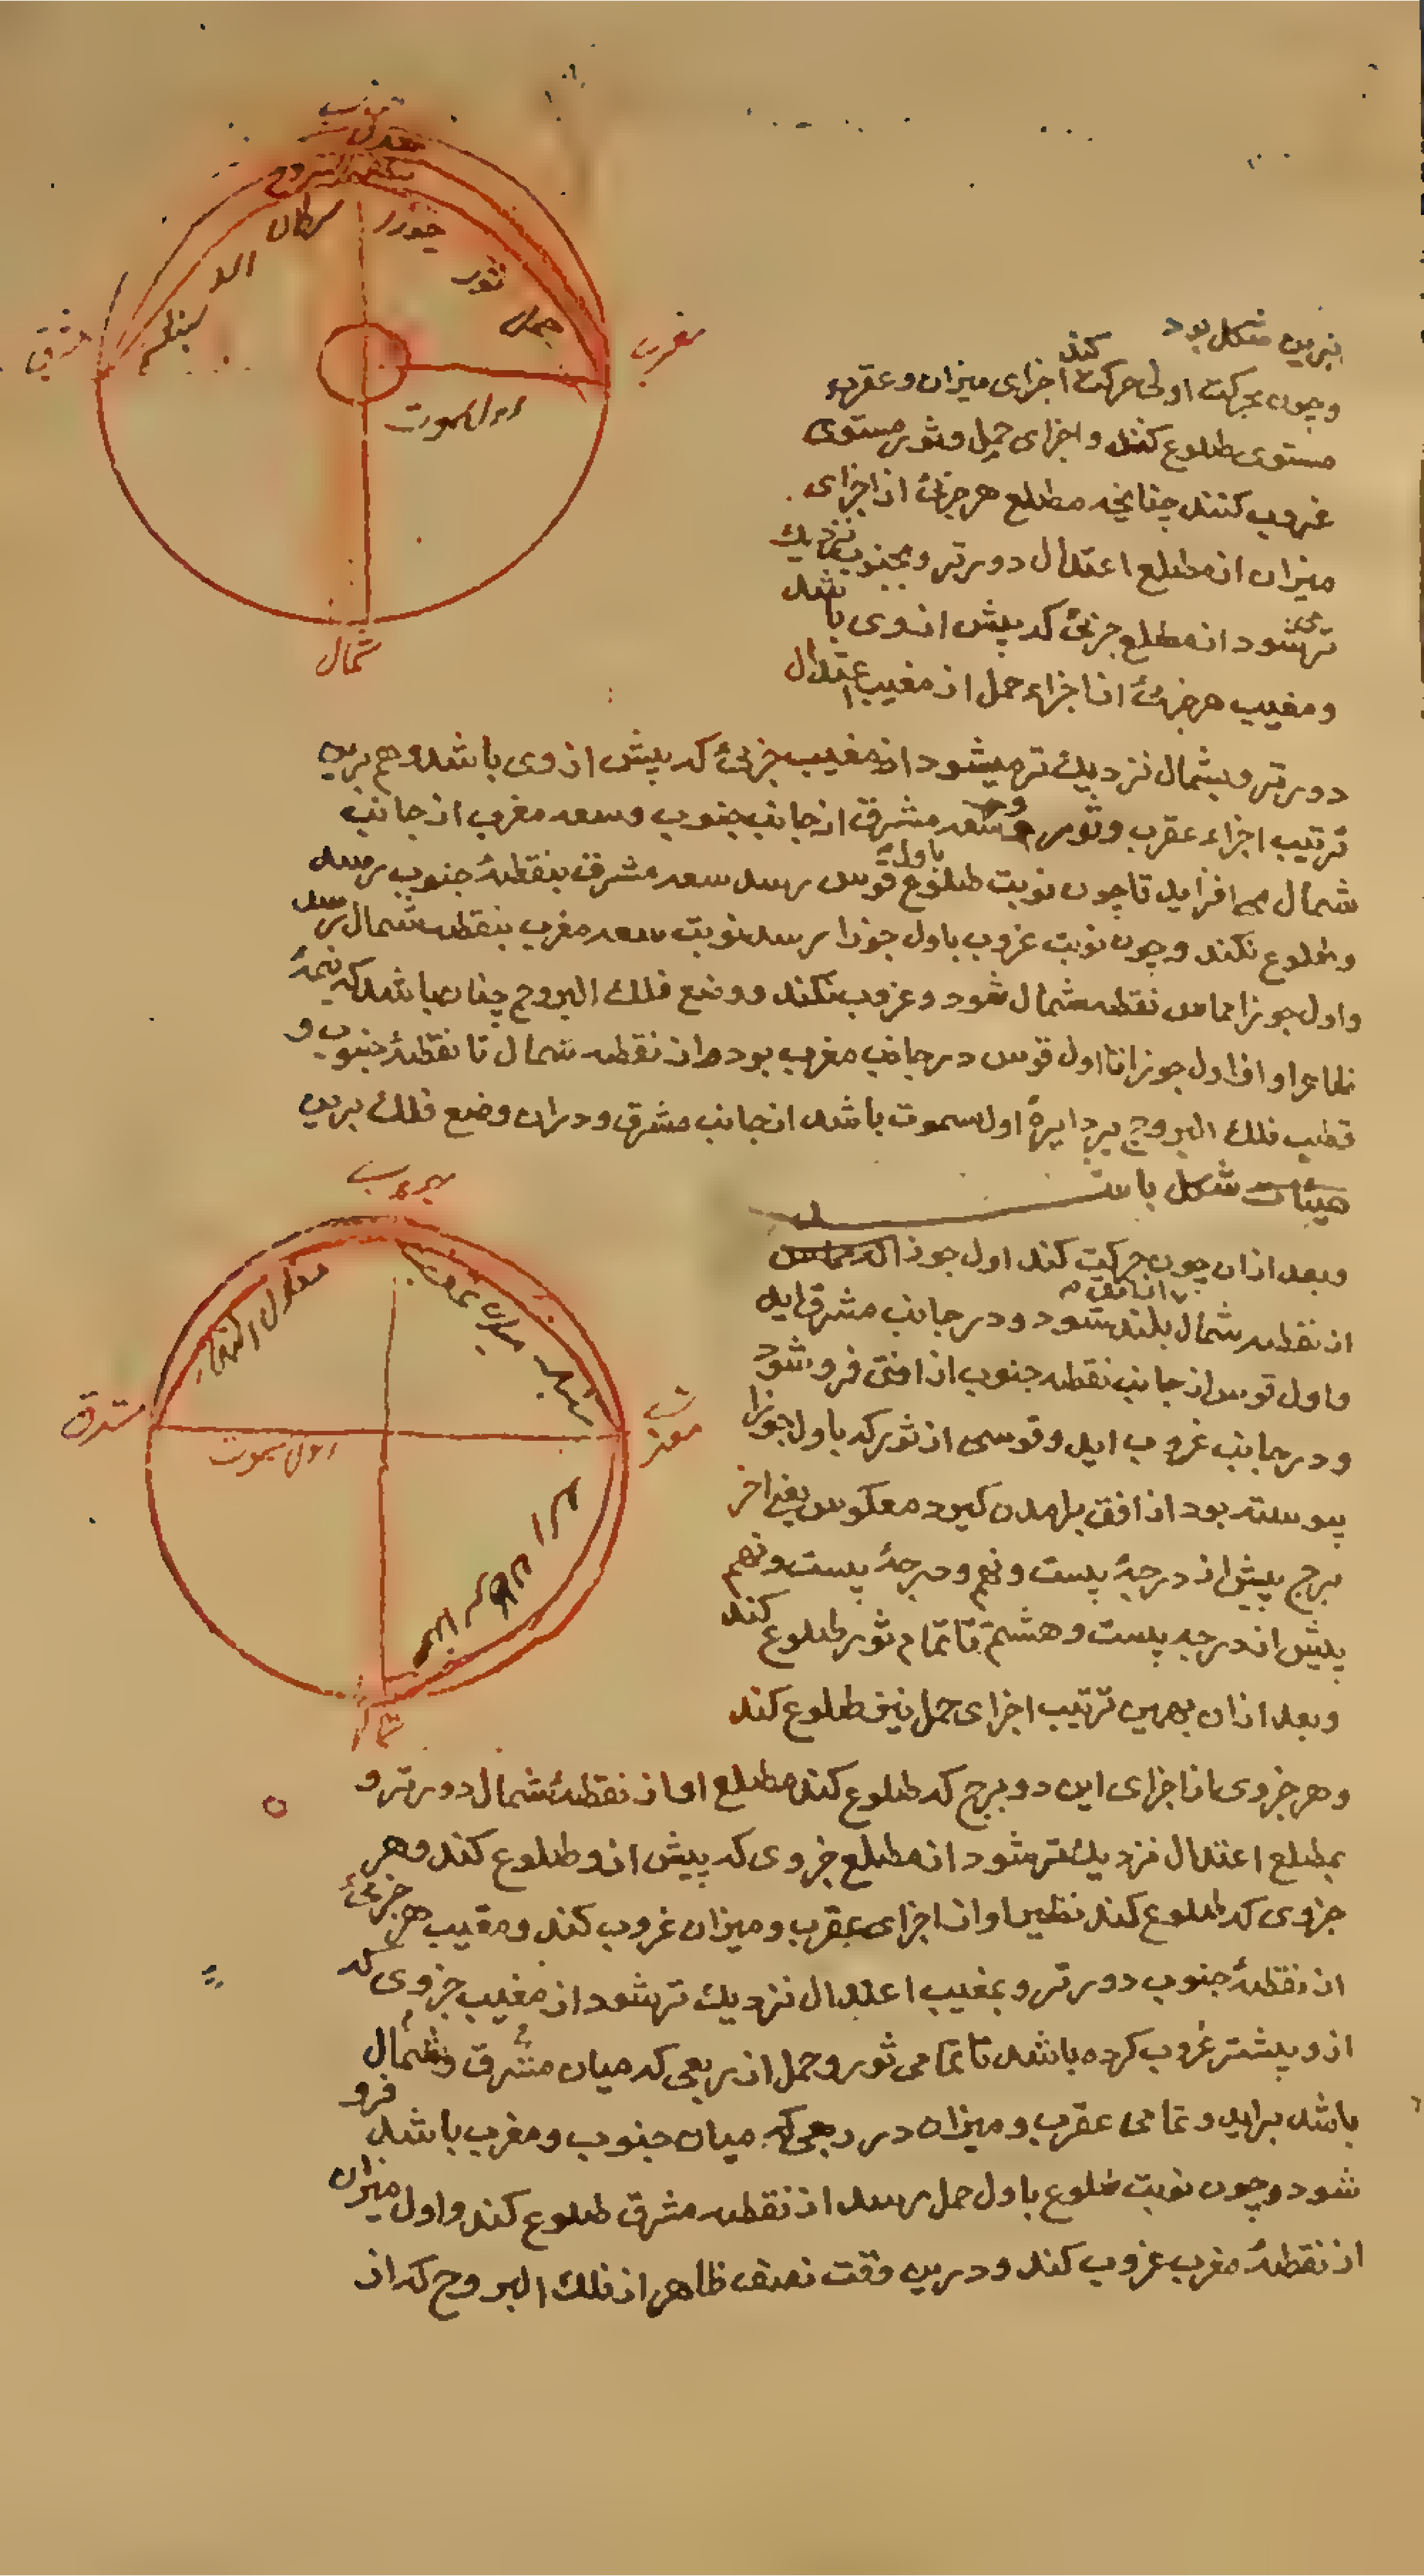 جنوب
معدل
منطقة البروج
سرطان
جوزا
اسد
ثور
سنبله
حمل
مشرق
مغرب
اول سموت
شمال
برین شکل بود
وچون بحرکت اولی حرکت کند اجزای میزان وعقرب
مستوی طلوع کنند و اجزای حمل وثور مستوی
غروب کنند چنانچه مطلع هر جزئ از اجزای
میزان از مطلع اعتدال دورتر و بجنوب نزدیک
تر می شود از مطلع جزئ که پیش از وی با شد
ومغیب هر جزئ از اجزاء حمل از مغیب اعتدال
دورتر و بشمال نزدیک تر میشود از مغیب جزئ که پیش از وی باشد وهم برین
ترتیب اجزاء عقرب وثور وسعه مشرق از جانب جنوب وسعه مغرب از جانب
شمال می افزاید تا چون نوبت طلوع باول قوس رسد سعه مشرق بنقطۀ جنوب رسد
وطلوع نکند وچون نوبت غروب باول جوزا رسد نوبت سعه مغرب بنقطه شمال رسد
واول جوزا مماس نقطه شمال شود وغروب نکند ووضع فلک البروج چنان باشد که نیمۀ
ظاهر او از اول جوزا تا اول قوس در جانب مغرب بود از نقطه شمال تا نقطۀ جنوب و
قطب فلک البروج بر دایرۀ اول سموت باشد از جانب مشرق ودران وضع فلک برین
هیئات شکل باشد
جنوب
معدل النهار
میزان عقرب
مشرق
مغرب
اول سموت
شمال
وبعد ازان چون حرکت کند اول جوزا که مماس
از نقطه شمال بلند شود ودر جانب مشرق اید
واول قوس از جانب نقطه جنوب از افق فرو شود
ودر جانب غروب اید وقوسی از ثور که باول جوزا
پیوسته بود از افق برامدن کیرد معکوس یعنی اخر
برج پیش از درجۀ بیست ونهم ودرجۀ بیست ونهم
پیش از درجه بیست وهشتم تا تمام ثور طلوع کند
وبعد ازان بهمین ترتیب اجزای حمل نیز طلوع کند
وهر جزوی از اجزای این دو برج که طلوع کند مطلع او از نقطۀ شمال دورتر و
بمطلع اعتدال نزدیک تر شود از مطلع جزوی که پیش از و طلوع کند وهر
جزوی که طلوع کند نظیر او از اجزای عقرب ومیزان غروب کند ومغیب هر جزئ
از نقطۀ جنوب دورتر و بمغیب اعتدال نزدیک تر شود از مغیب جزوی که
از و پیشتر غروب کرده باشد تا تمامی ثور وحمل از ربعی که میان مشرق وشمال
باشد براید وتمامی عقرب ومیزان در ربعی که میان جنوب ومغرب باشد فرو
شود وچون نوبت طلوع باول حمل رسد از نقطه مشرق طلوع کند واول میزان
از نقطۀ مغرب غروب کند ودرین وقت نصف ظاهر از فلک البروج که از